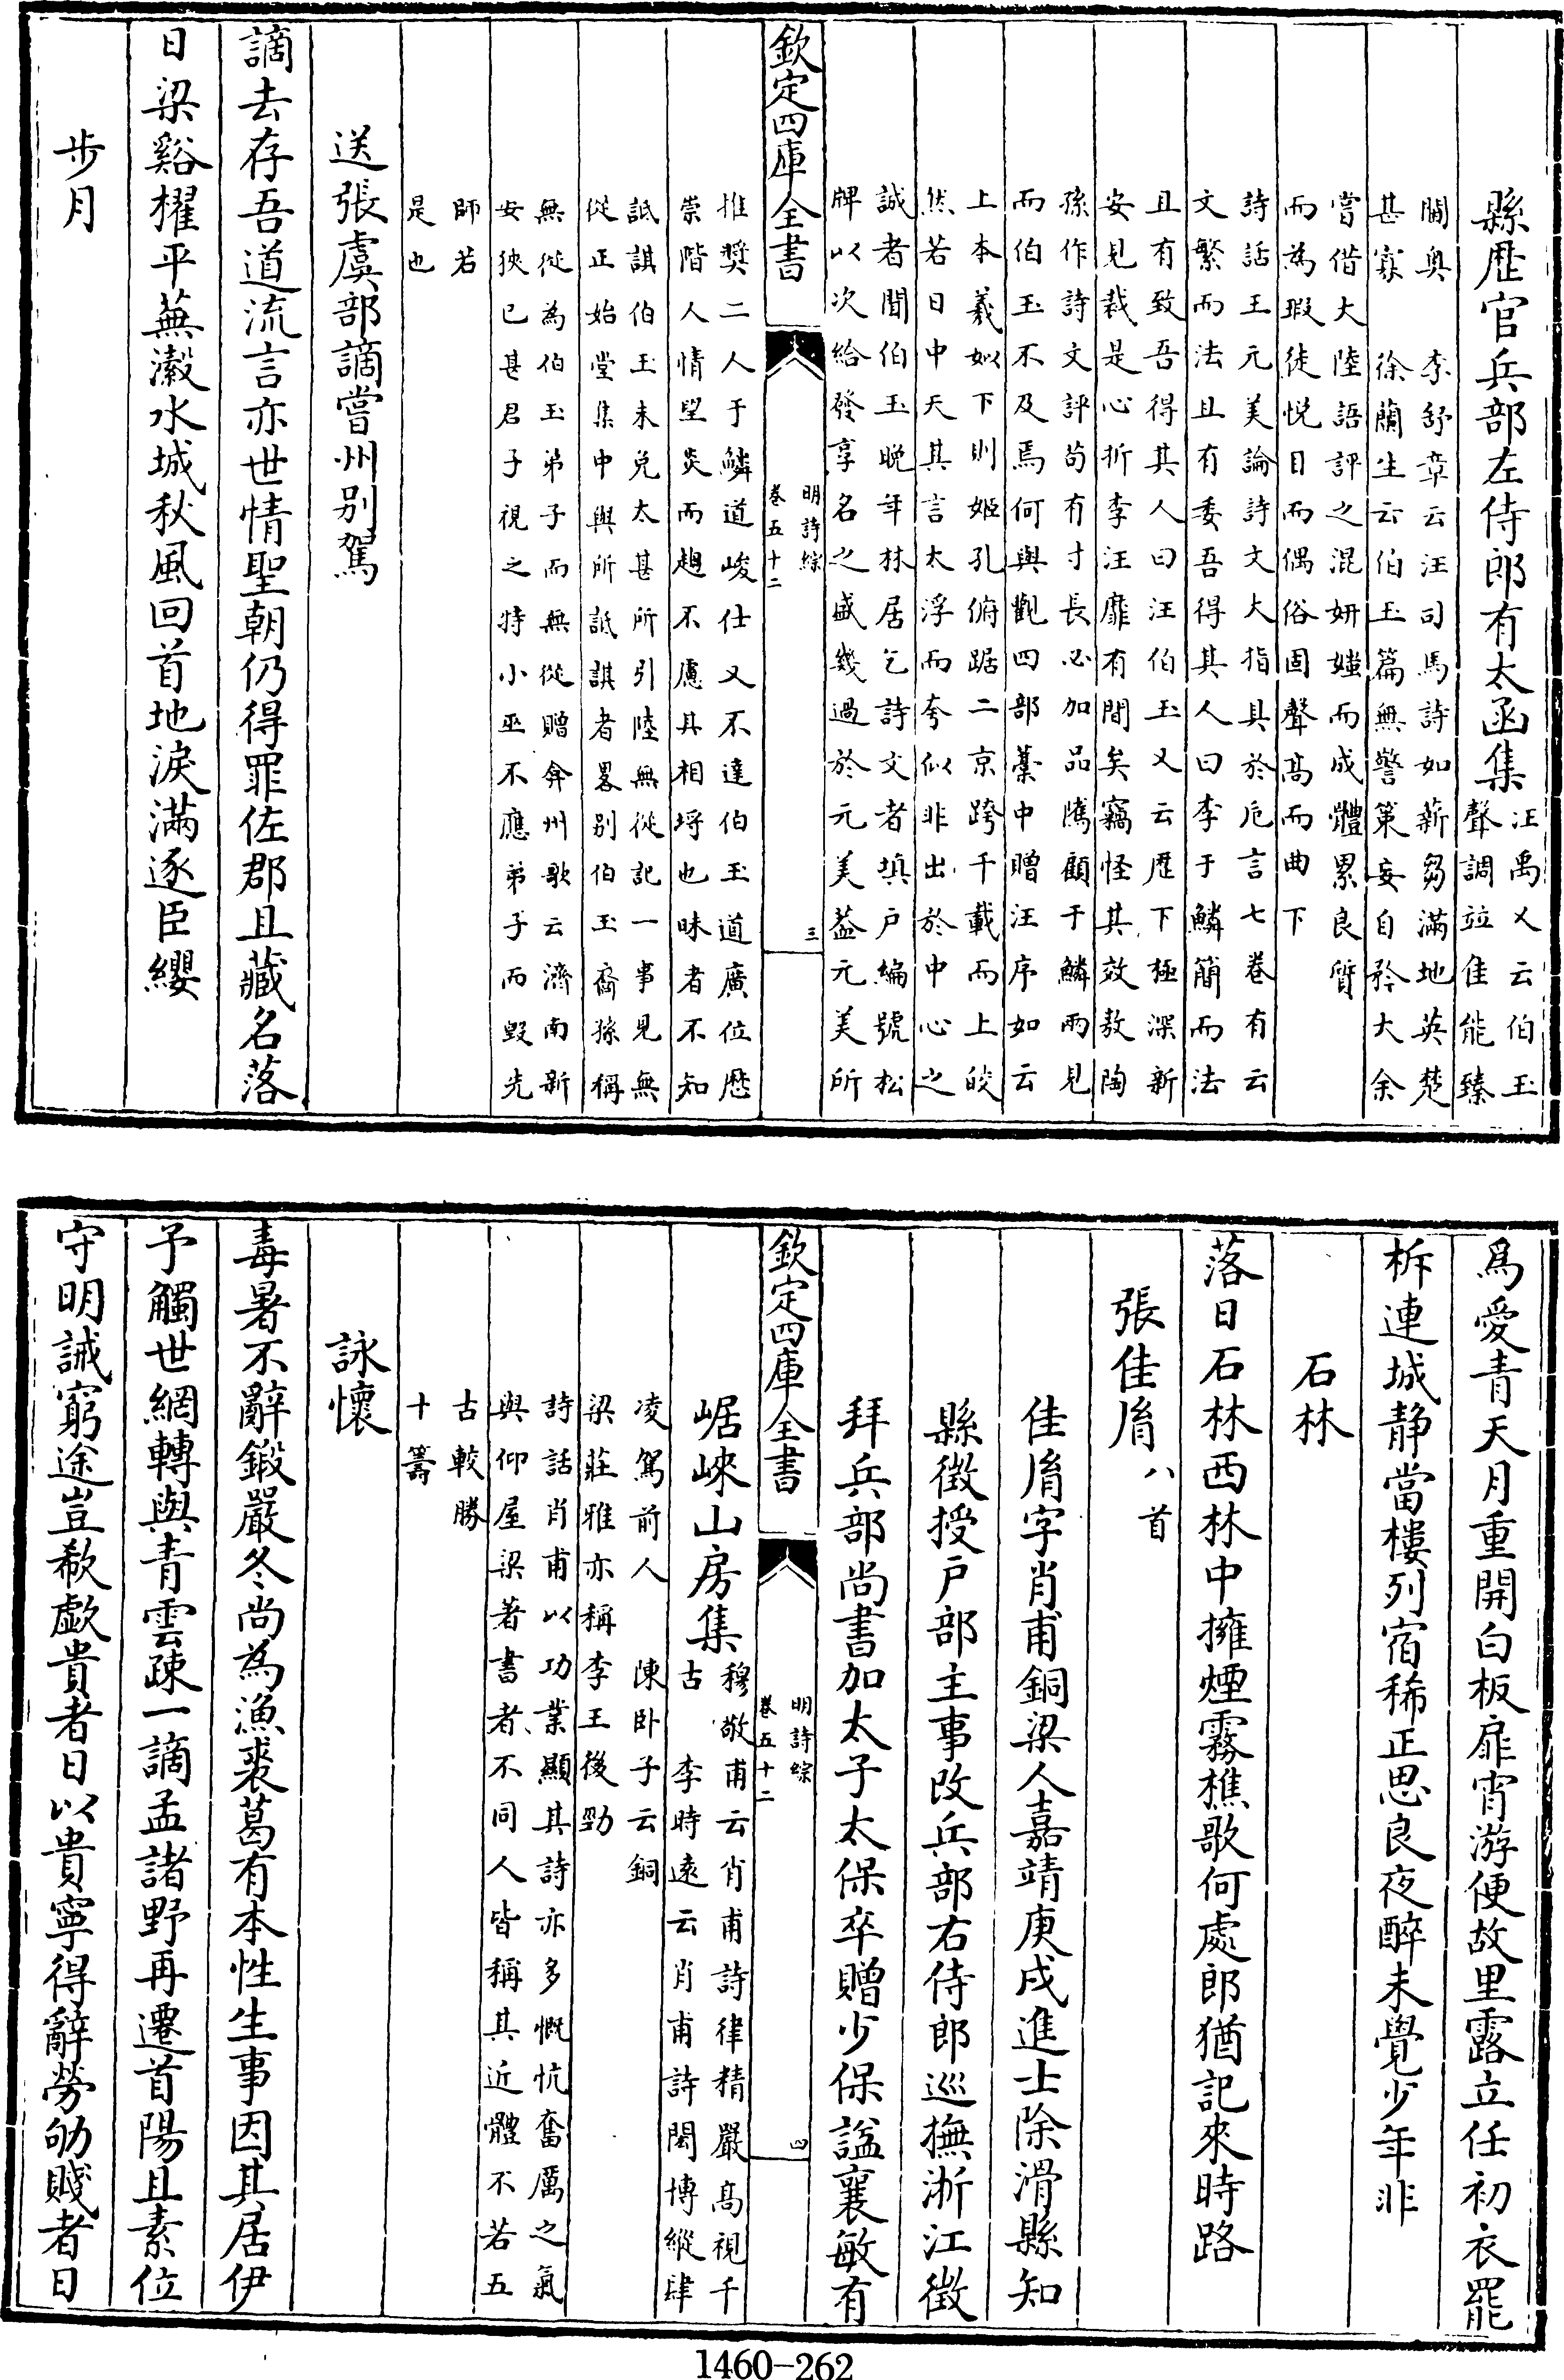 縣歴官兵部左侍郎有太函集汪禹乂云伯玉
聲調竝佳能臻
閫奥　李舒章云汪司馬詩如薪芻滿地英楚
甚寡　徐蘭生云伯玉篇無警策妄自矜大余
嘗偕大陸語評之混妍媸而成體累良質
而為瑕徒悦目而偶俗固聲髙而曲下
詩話王元美論詩文大指具於巵言七卷有云
文繁而法且有委吾得其人曰李于鱗簡而法
且有致吾得其人曰汪伯玉又云歴下極深新
安見裁是心折李汪靡有間矣竊怪其效敖陶
孫作詩文評茍有寸長必加品隲顧于鱗兩見
而伯玉不及焉何與觀四部藁中贈汪序如云
上本羲姒下則姬孔俯踞二京跨千載而上皎
然若日中天其言太浮而夸似非出於中心之
誠者聞伯玉晩年林居乞詩文者填户編號松
牌以次給發享名之盛幾過於元美葢元美所
欽定四庫全書
明詩綜
卷五十二
三
推奬二人于鱗道峻仕又不達伯玉道廣位歴
崇階人情望炎而趨不慮其相埒也昧者不知
詆諆伯玉未免太甚所引陸無從記一事見無
從正始堂集中與所詆諆者畧别伯玉裔孫稱
無從為伯玉弟子而無從贈弇州歌云濟南新
安狹已甚君子視之特小巫不應弟子而毁先
師若
是也
送張虞部謫嘗州别駕
謫去存吾道流言亦世情聖朝仍得罪佐郡且藏名落
日梁谿櫂平蕪瀔水城秋風回首地淚滿逐臣纓
步月
爲愛青天月重開白板扉宵游便故里露立任初衣罷
柝連城静當樓列宿稀正思良夜醉未覺少年非
石林
落日石林西林中擁煙霧樵歌何處郎猶記來時路
張佳胤八首
佳胤字肖甫銅梁人嘉靖庚戌進士除滑縣知
縣徴授户部主事改兵部右侍郎巡撫浙江徴
拜兵部尚書加太子太保卒贈少保諡襄敏有
欽定四庫全書
明詩綜
卷五十二
四
崌崍山房集穆敬甫云肖甫詩律精嚴髙視千
古　李時遠云肖甫詩閎博縱肆
凌駕前人　陳卧子云銅
梁莊雅亦稱李王後勁
詩話肖甫以功業顯其詩亦多慨忼奮厲之氣
與仰屋梁著書者不同人皆稱其近體不若五
古較勝
十籌
詠懷
毒暑不辭鍛嚴冬尚為漁裘葛有本性生事因其居伊
予觸世網轉與青雲疎一謫孟諸野再遷首陽且素位
守明誡窮途豈欷歔貴者日以貴寧得辭勞劬賤者日
1460-262